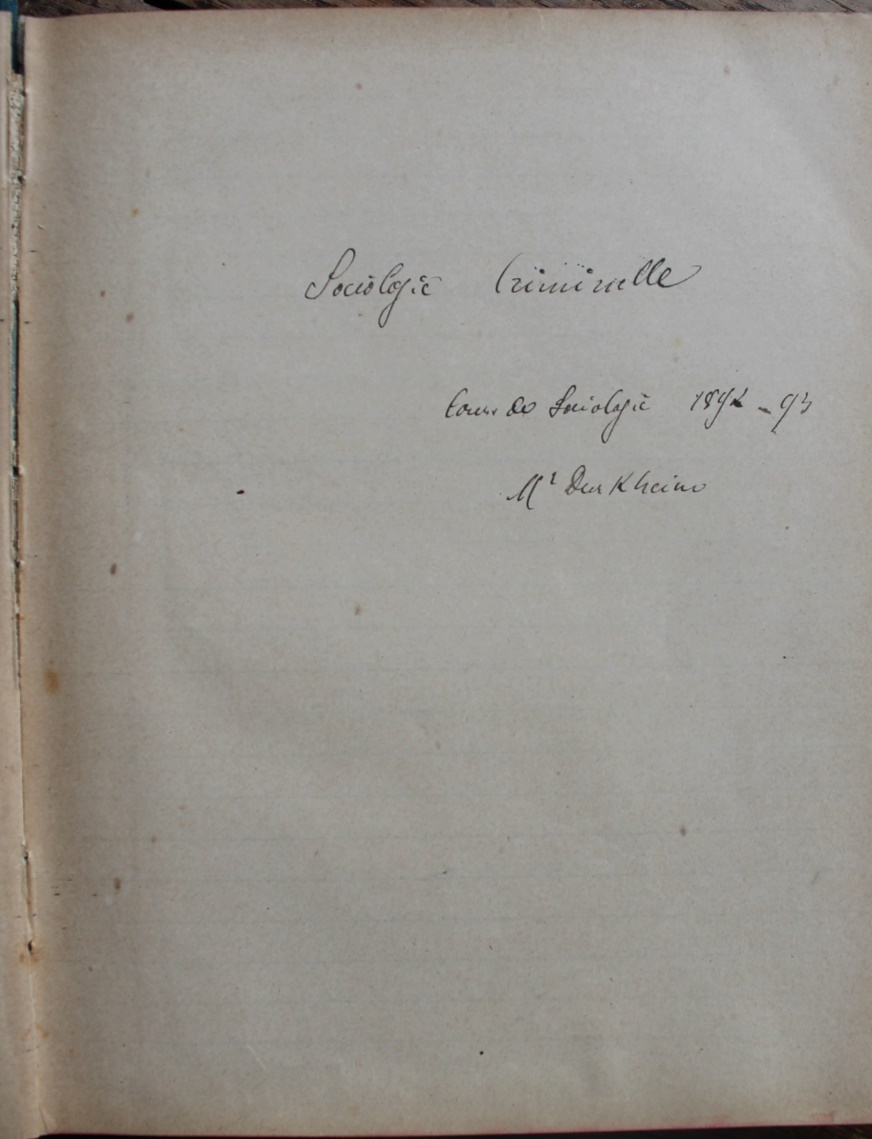 Sociologie Criminelle
Cours de Sociologie 1892-93
Mr Durkheim